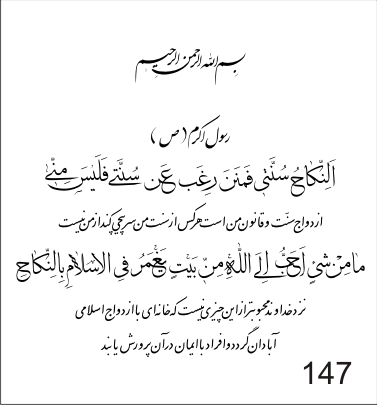 بسم الله الرحمن الرحیم
رسول اکرم (ص)
اَلنِّکاحُ سُنَّتي فَمَنَ رَغِبَ عَن سُنَّتي فَلَيسَ مِنّي
ازدواج سنّت و قانون من است هرکس از سنت من سرپیچی کند از من نیست
مامِنْ شيْ اَحَبُّ لِلَ اللّٰهِ مِنْ بَيْتٍ يَعْمَرُ في الاسْلامِ بِالنِّکاحِ
نزد خداوند محبوبتر از این چیزی نیست که خانه ای با ازدواج اسلامی
آبادان گردد و افراد با ایمان در آن پرورش یابند
147